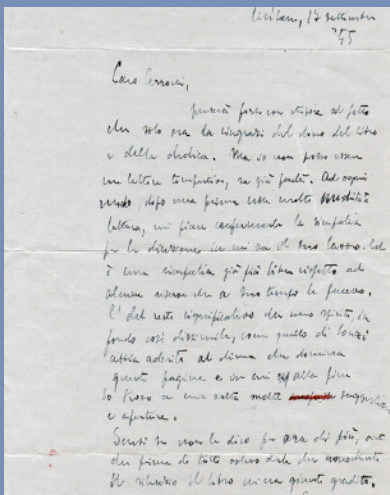 Milano, 17 settembre
'55
Caro Cerroni,
penserà forse con stupore al fatto
che solo ora la ringrazi del dono del libro
e della dedica. Ma io non posso essere
un lettore tempestivo, sa già
modo, dopo una prima non molto meditata
lettura, mi piace confermarle la simpatia
per la direzione in cui va il suo lavoro. Ed
è una simpatia già più libera rispetto ad
alcune riserve che a suo tempo le facevo.
E' del resto significativo che uno spirito, in
fondo così dissimile, come quello di
abbia aderito al clima che domina
queste pagine e in cui alla fine
io trovo a mia volta molte suggestioni
e aperture.
Scusi se non le dico per ora di più,
che prima di tutto
il silenzio il libro mi era giunto gradito.